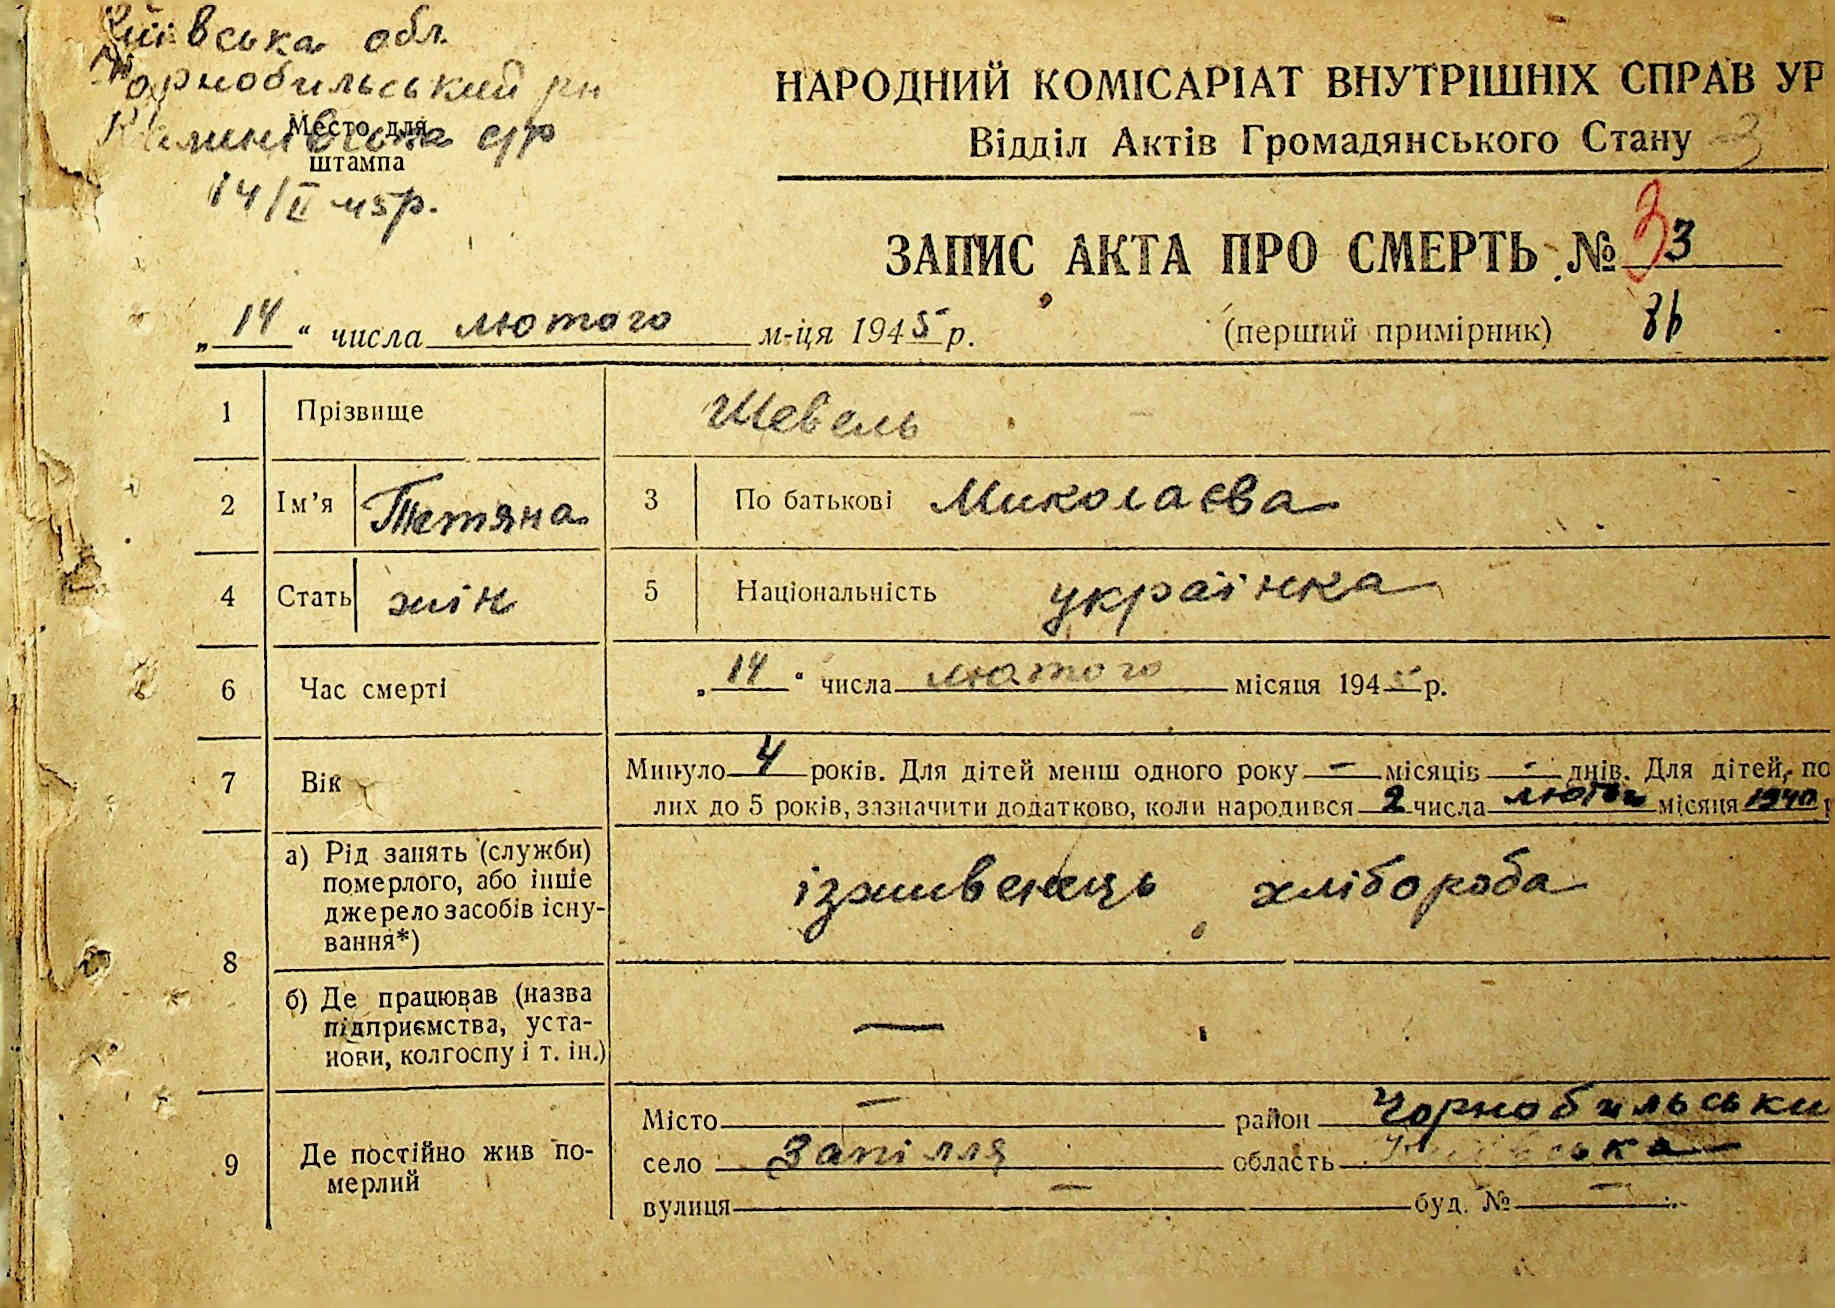 Київська обл.
Чорнобильський рн
Место для
штампа
14/II 45р.
НАРОДНИЙ КОМІСАРІАТ ВНУТРІШНІХ СПРАВ УР
Відділ Актів Громадянського Стану 3
ЗАПИС АКТА ПРО СМЕРТЬ № 33
„14“ числа лютого м-ця 1945 р.
(перший примірник)
1 Прізвище Шевель
2 Ім'я Тетяна 3 По батькові Миколаєва
4 Стать жін 5 Національність українка
6 Час смерті „14“ числа лютого місяця 1945 р.
7 Вік Минуло 4 років. Для дітей менш одного року – місяців - днів. Для дітей, по
лих до 5 років, зазначити додатково, коли народився 2 числа лютого місяця 1940 р
8 а) Рід занять (служби)
померлого, або інше
джерело засобів існу-
вання*)
ізживенець хлібороба
б) Де працював (назва
підприємства, уста-
нови, колгоспу і т. ін.) —
9 Де постійно жив по-
мерлий
Місто — район Чорнобильськи
село Запілля область Київська
вулиця — буд. № —